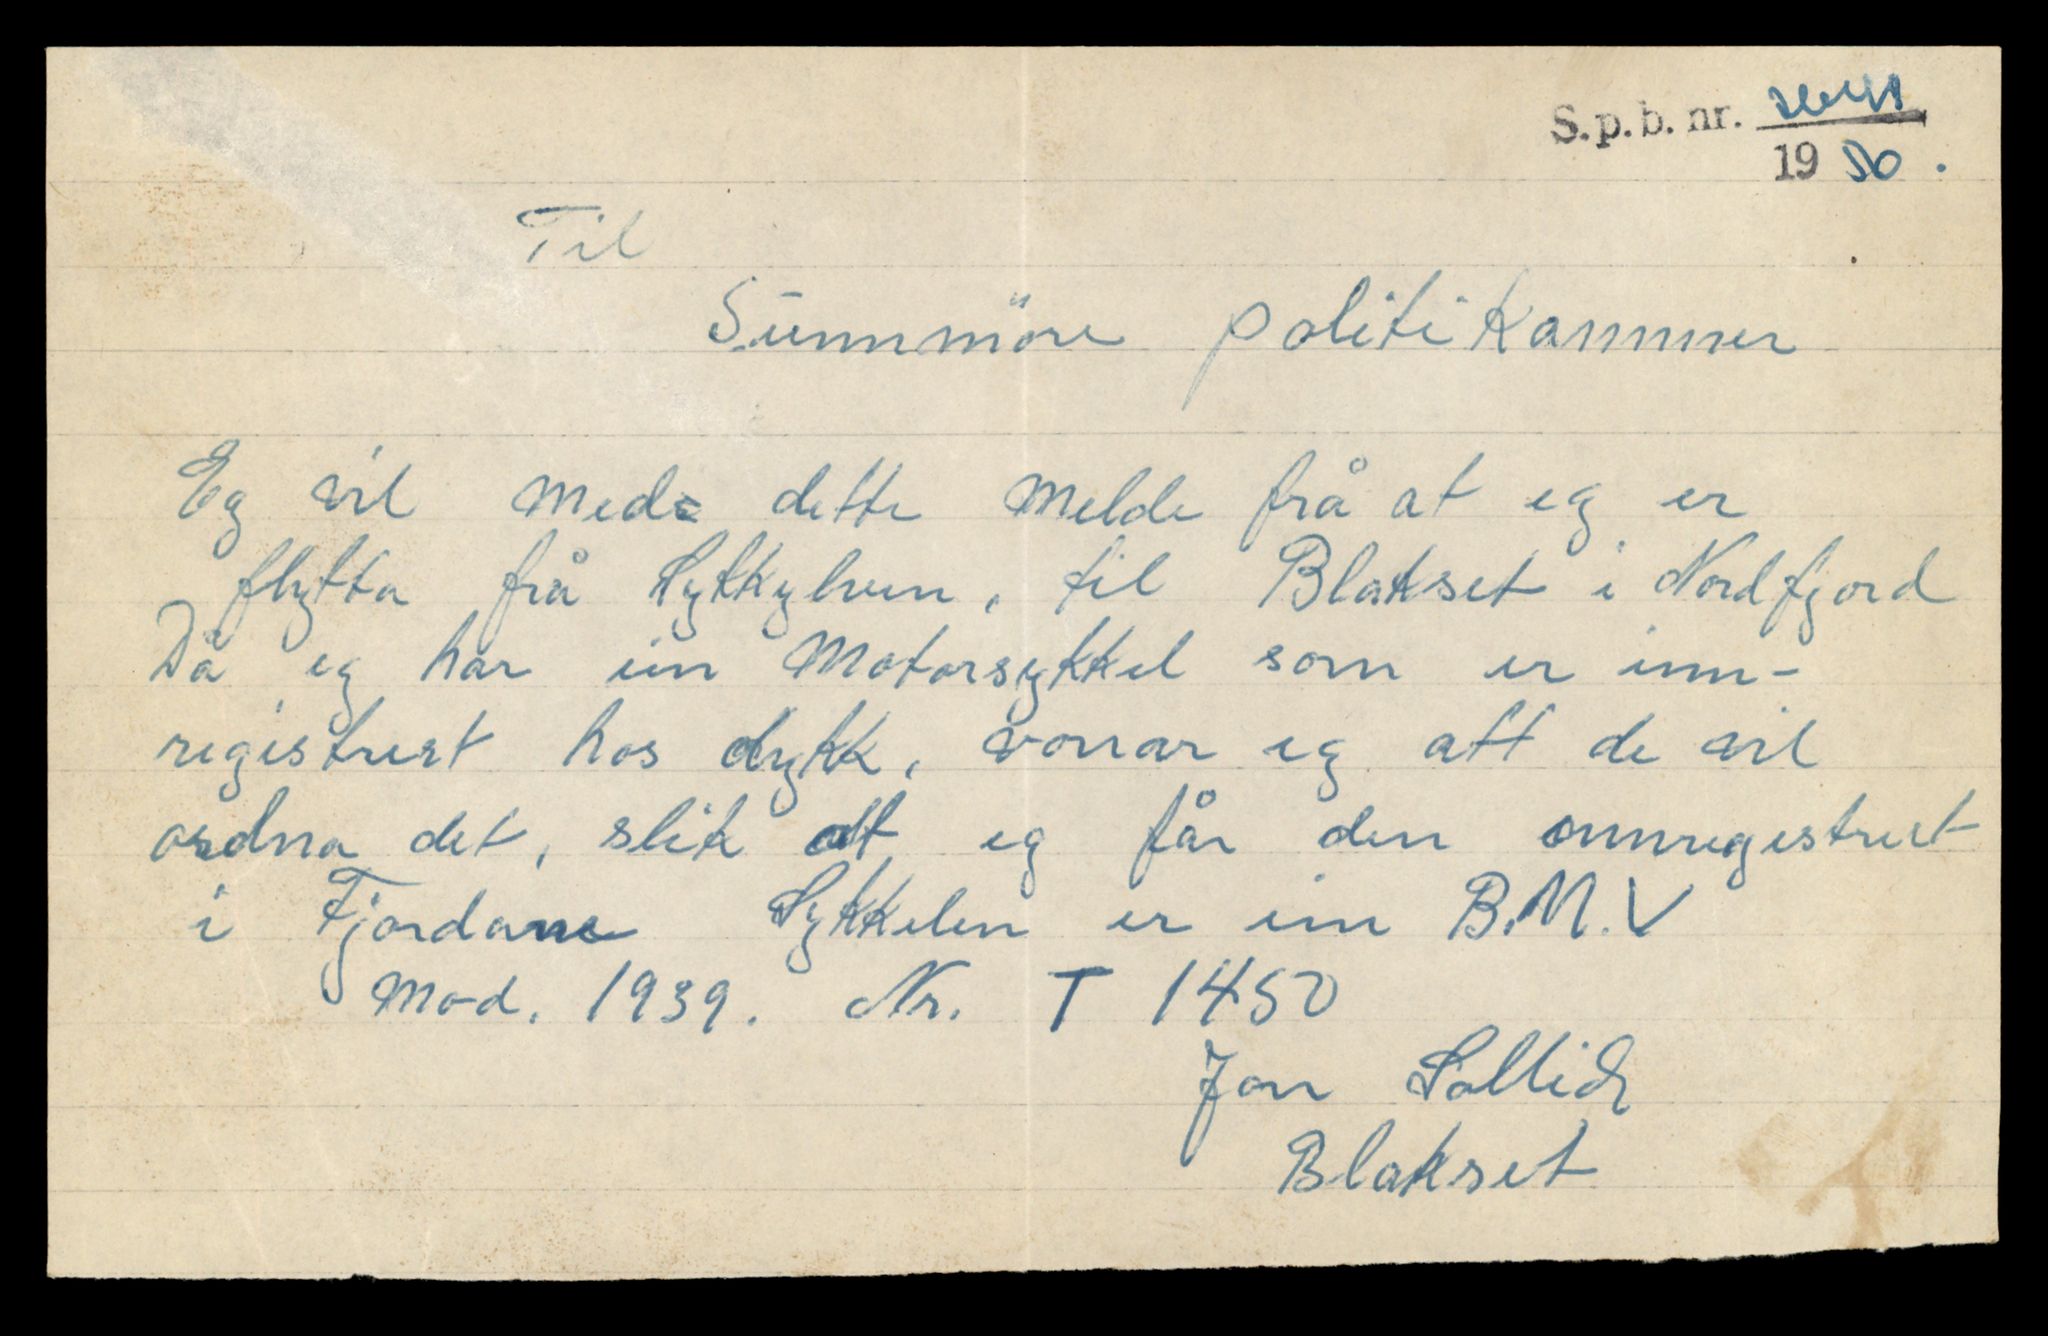 S.p.b. nr.
19 50.
Til
Sunnmöre politikammer
Eg vil med dette melde frå at eg er
flytta frå Sykkylven, til Blakset i Nordfjord
Då eg har ein Motorsykkel som er inn-
registrert hos dykk, vonar eg att de vil
ordna det, slik att eg får den omregistrert
i Fjordane Sykkelen er ein B.M.V
Mod. 1939. Nr. T 1450
Jon Sollid
Blakset